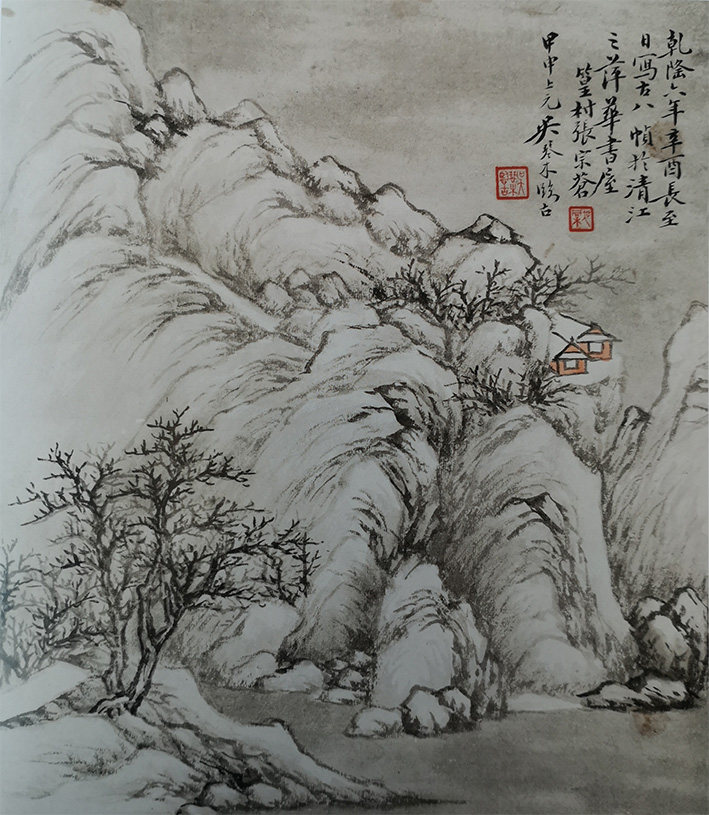 乾隆六年辛酉長至
日寫古八幀於清江
之萍華書屋
篁村張宗蒼
甲申上元吴琴木臨古